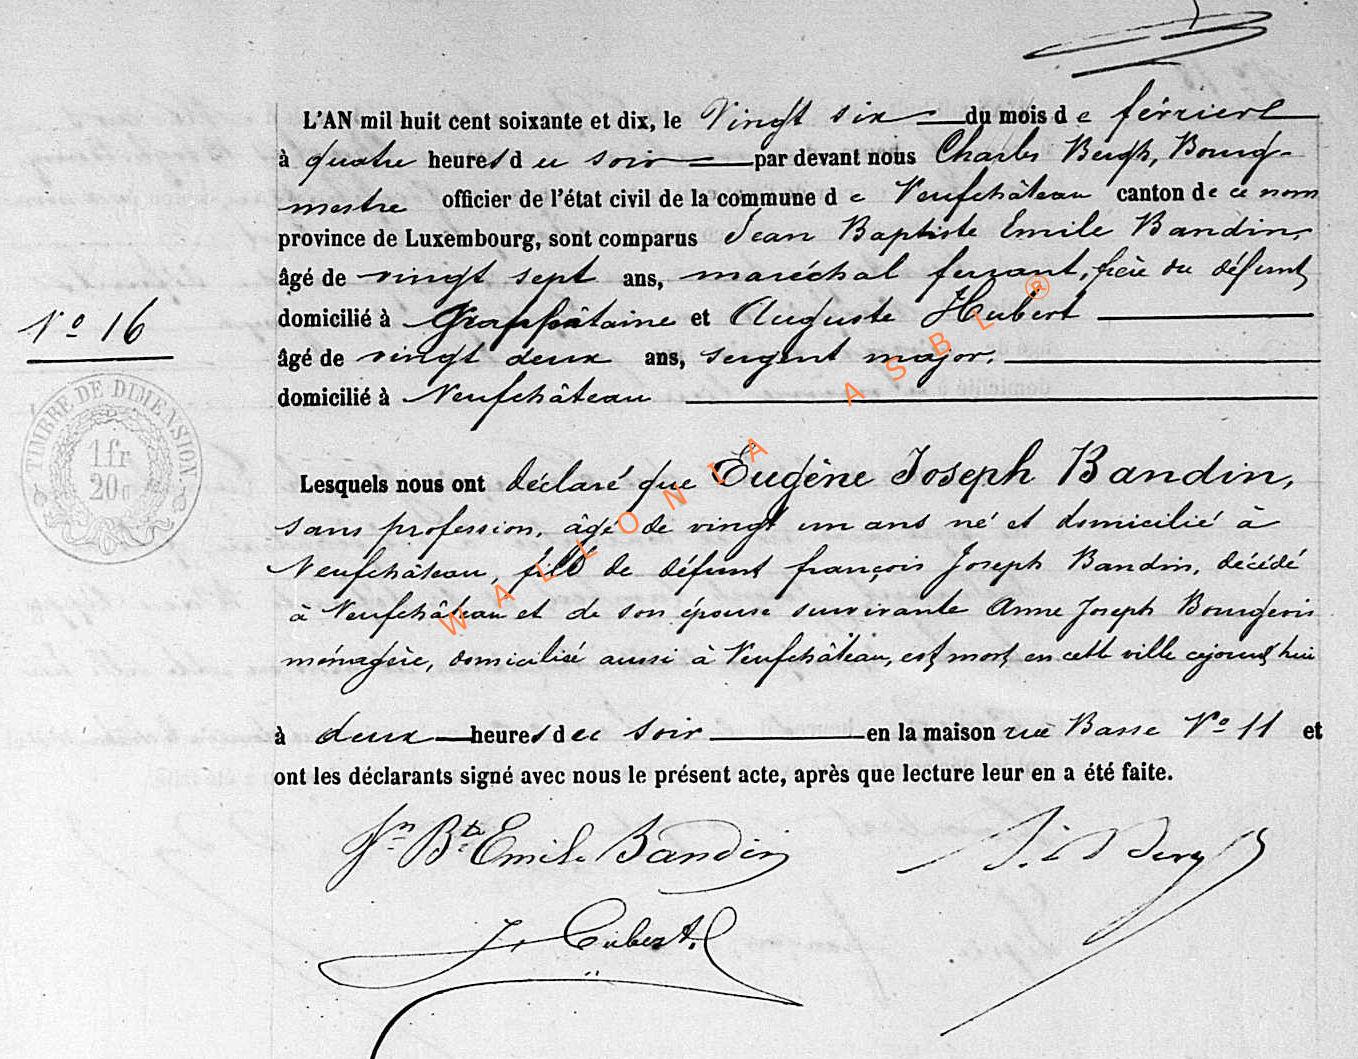 L'AN mil huit cent soixante et dix, le Vingt six du mois de février
à quatre heures du soir par devant nous Charles Bergh, Bourg-
mestre officier de l'état civil de la commune de Neufchâteau canton de ce nom
province de Luxembourg, sont comparus Jean Baptiste Emile Bandin,
âgé de vingt sept ans, maréchal ferrant, frère du défunt
N° 16
domicilié à Grapfontaine et Auguste Hubert
âgé de vingt deux ans, sergent major,
domicilié à Neufchâteau
TIMBRE DE DIMENSION
1 fr
20
Lesquels nous ont déclaré que Eugène Joseph Bandin,
sans profession, âgé de vingt un ans né et domicilié à
Neufchâteau, fils de défunt françois Joseph Bandin, décédé
à Neufchâteau et de son épouse survivante Anne Joseph Bourgeois
ménagère, domiciliée aussi à Neufchâteau, est mort en cette ville cejourd'hui
à deux heures du soir en la maison rue Basse N° 11 et
ont les déclarants signé avec nous le présent acte, après que lecture leur en a été faite.
Jn Bte Emile Bandin
WALLONIA ASBL ®